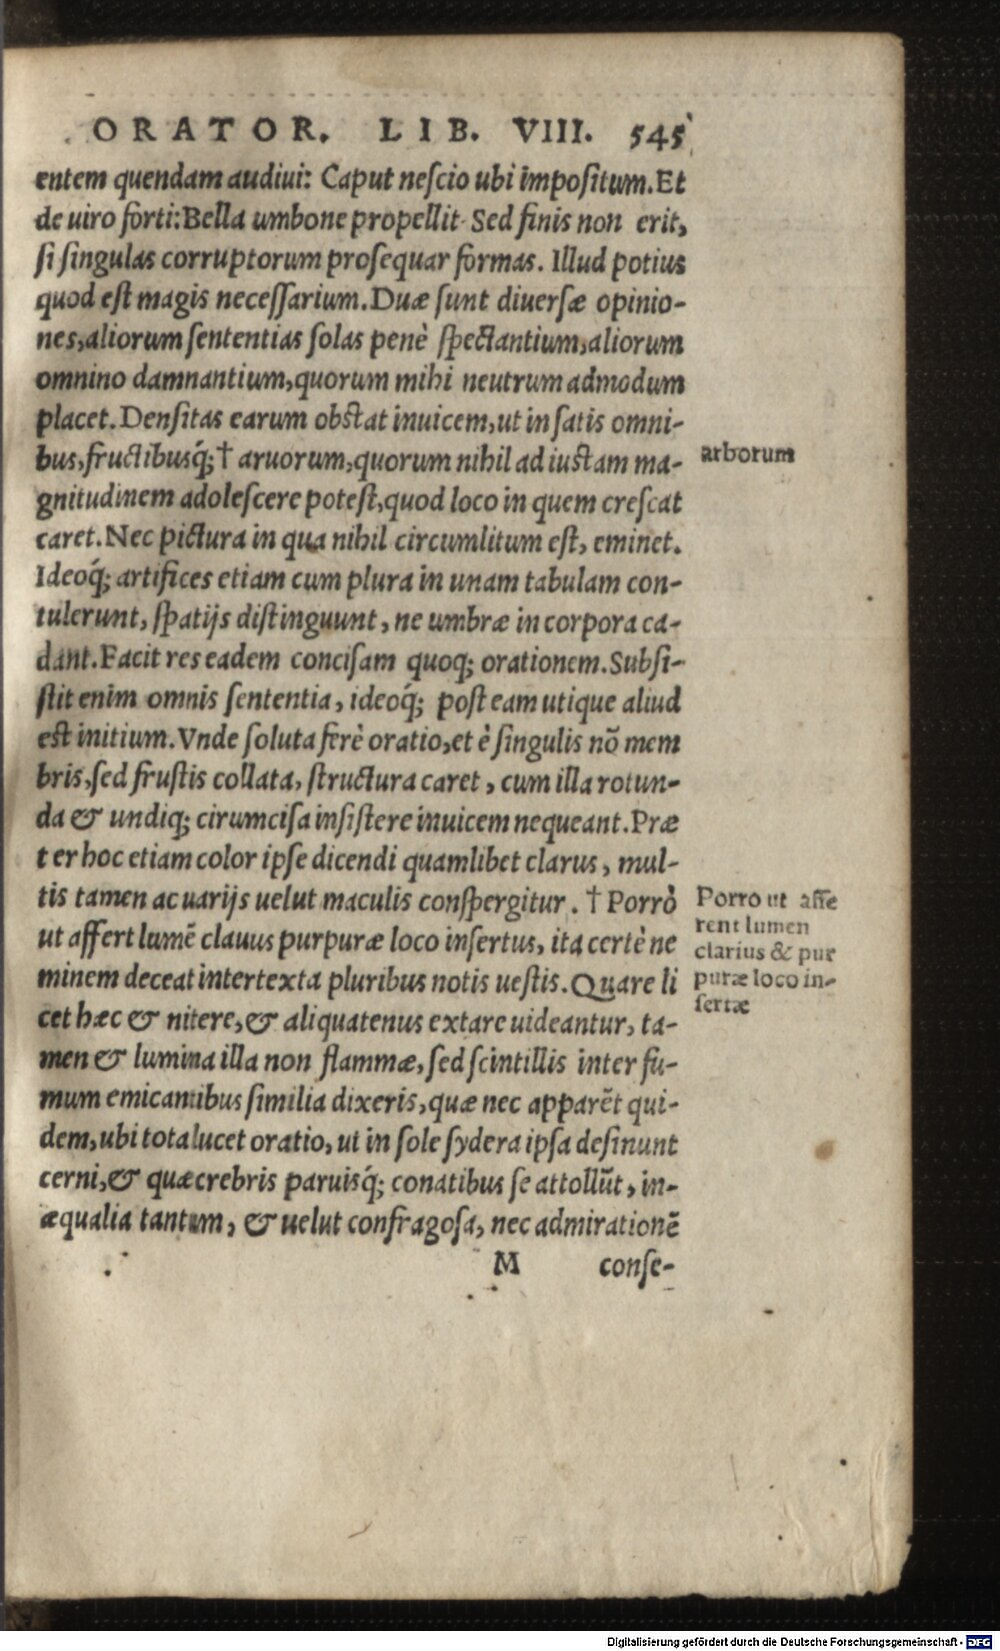 ORATOR. LIB. VIII. 545
entem quendam audiui: Caput neſcio ubi impoſitum. Et
de uiro forti: Bella umbone propellit. Sed finis non erit,
ſi ſingulas corruptorum proſequar formas. Illud potius
quod eſt magis neceſſarium. Duæ ſunt diuerſæ opinio-
nes, aliorum ſententias ſolas penè ſpectantium, aliorum
omnino damnantium, quorum mihi neutrum admodum
placet. Denſitas earum obſtat inuicem, ut in ſatis omni-
bus, fructibusq́; † aruorum, quorum nihil ad iuſtam ma-
arborum
gnitudinem adoleſcere poteſt, quod loco in quem creſcat
caret. Nec pictura in qua nihil circumlitum eſt, eminet.
Ideoq́; artifices etiam cum plura in unam tabulam con-
tulerunt, ſpatijs diſtinguunt, ne umbræ in corpora ca-
dant. Facit res eadem conciſam quoq; orationem. Subſi-
ſtit enim omnis ſententia, ideoq́; poſt eam utique aliud
eſt initium. Vnde ſoluta ferè oratio, et è ſingulis nõ mem
bris, ſed fruſtis collata, ſtructura caret, cum illa rotun-
da & undiq; cirumciſa inſiſtere inuicem nequeant. Præ
ter hoc etiam color ipſe dicendi quamlibet clarus, mul-
tis tamen ac uarijs uelut maculis conſpergitur. † Porrò
ut affert lumẽ clauus purpuræ loco inſertus, ita certè ne
minem deceat intertexta pluribus notis ueſtis. Quare li
Porro ut affe
rent lumen
clarius & pur
puræ loco in-
ſertæ
cet hæc & nitere, & aliquatenus extare uideantur, ta-
men & lumina illa non flammæ, ſed ſcintillis inter fu-
mum emicantibus ſimilia dixeris, quæ nec apparẽt qui-
dem, ubi tota lucet oratio, ut in ſole ſydera ipſa deſinunt
cerni, & quæ crebris paruisq́; conatibus ſe attollũt, in-
æqualia tantum, & uelut confragoſa, nec admirationẽ
M conſe-
Digitalisierung gefördert durch die Deutsche Forschungsgemeinschaft - DFG